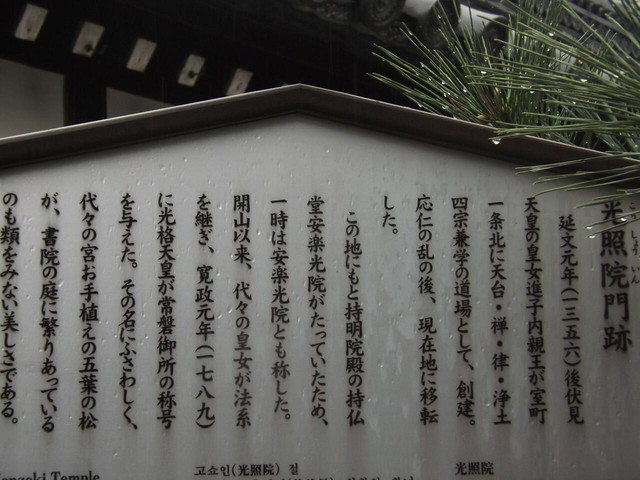 光照院門跡
こうしょういん
延文元年(一三五六)後伏見
天皇の皇女進子内親王が室町
一条北に天台・禅・律・浄土
四宗兼学の道場として、創建。
応仁の乱の後、現在地に移転
した。
この地にもと持明院殿の持仏
堂安楽光院がたっていたため、
一時は安楽光院とも称した。
開山以来、代々の皇女が法系
を継ぎ、寛政元年(一七八九)
に光格天皇が常磐御所の称号
を与えた。その名にふさわしく、
代々の宮お手植えの五葉の松
が、書院の庭に繁りあっている
のも類をみない美しさである。
Monzeki Temple
고쇼인(光照院) 절
光照院